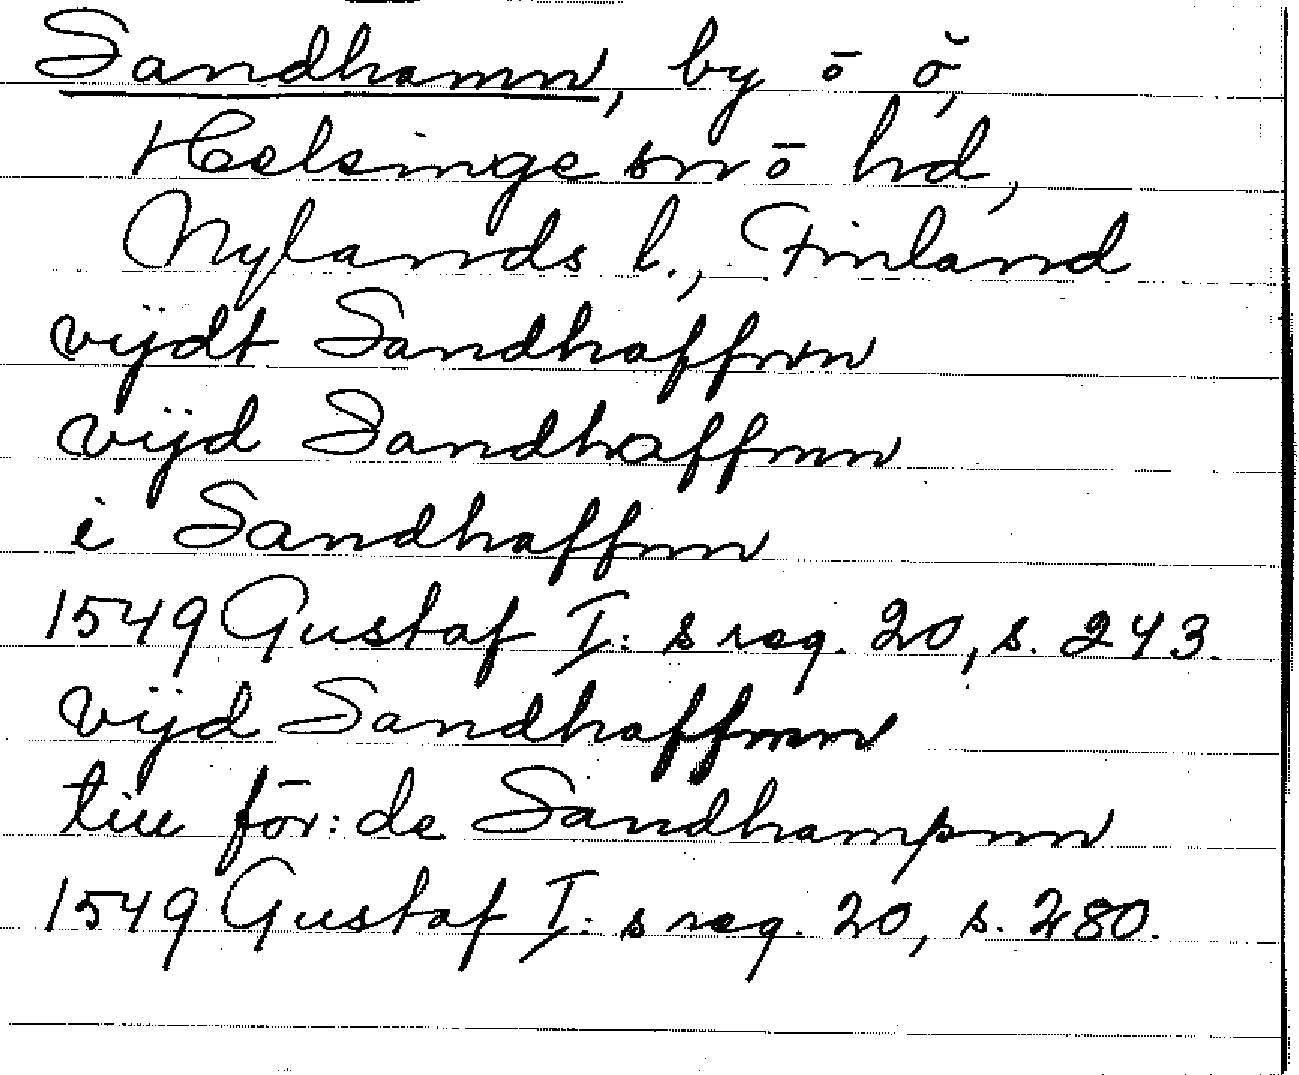 Sandhamn, by ō ŏ,
Helsinge sn ō hd,
Nylands l., Finland
vijdt Sandhaffnn
vijd Sandhaffmn
i Sandhaffnn
1549 Gustaf I: s reg. 20, s. 243.
vijd Sandhaffmn
till för: de Sandhampnn
1549 Gustaf I: s reg. 20, s. 280.